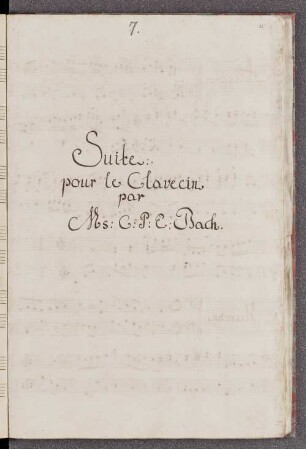 7.
Suite:
pour le Clavecin
par
Ms: C: P: E: Bach.